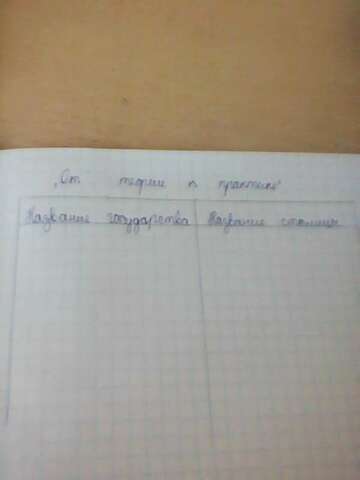 „От теории к практике"
Название государства Название столицы